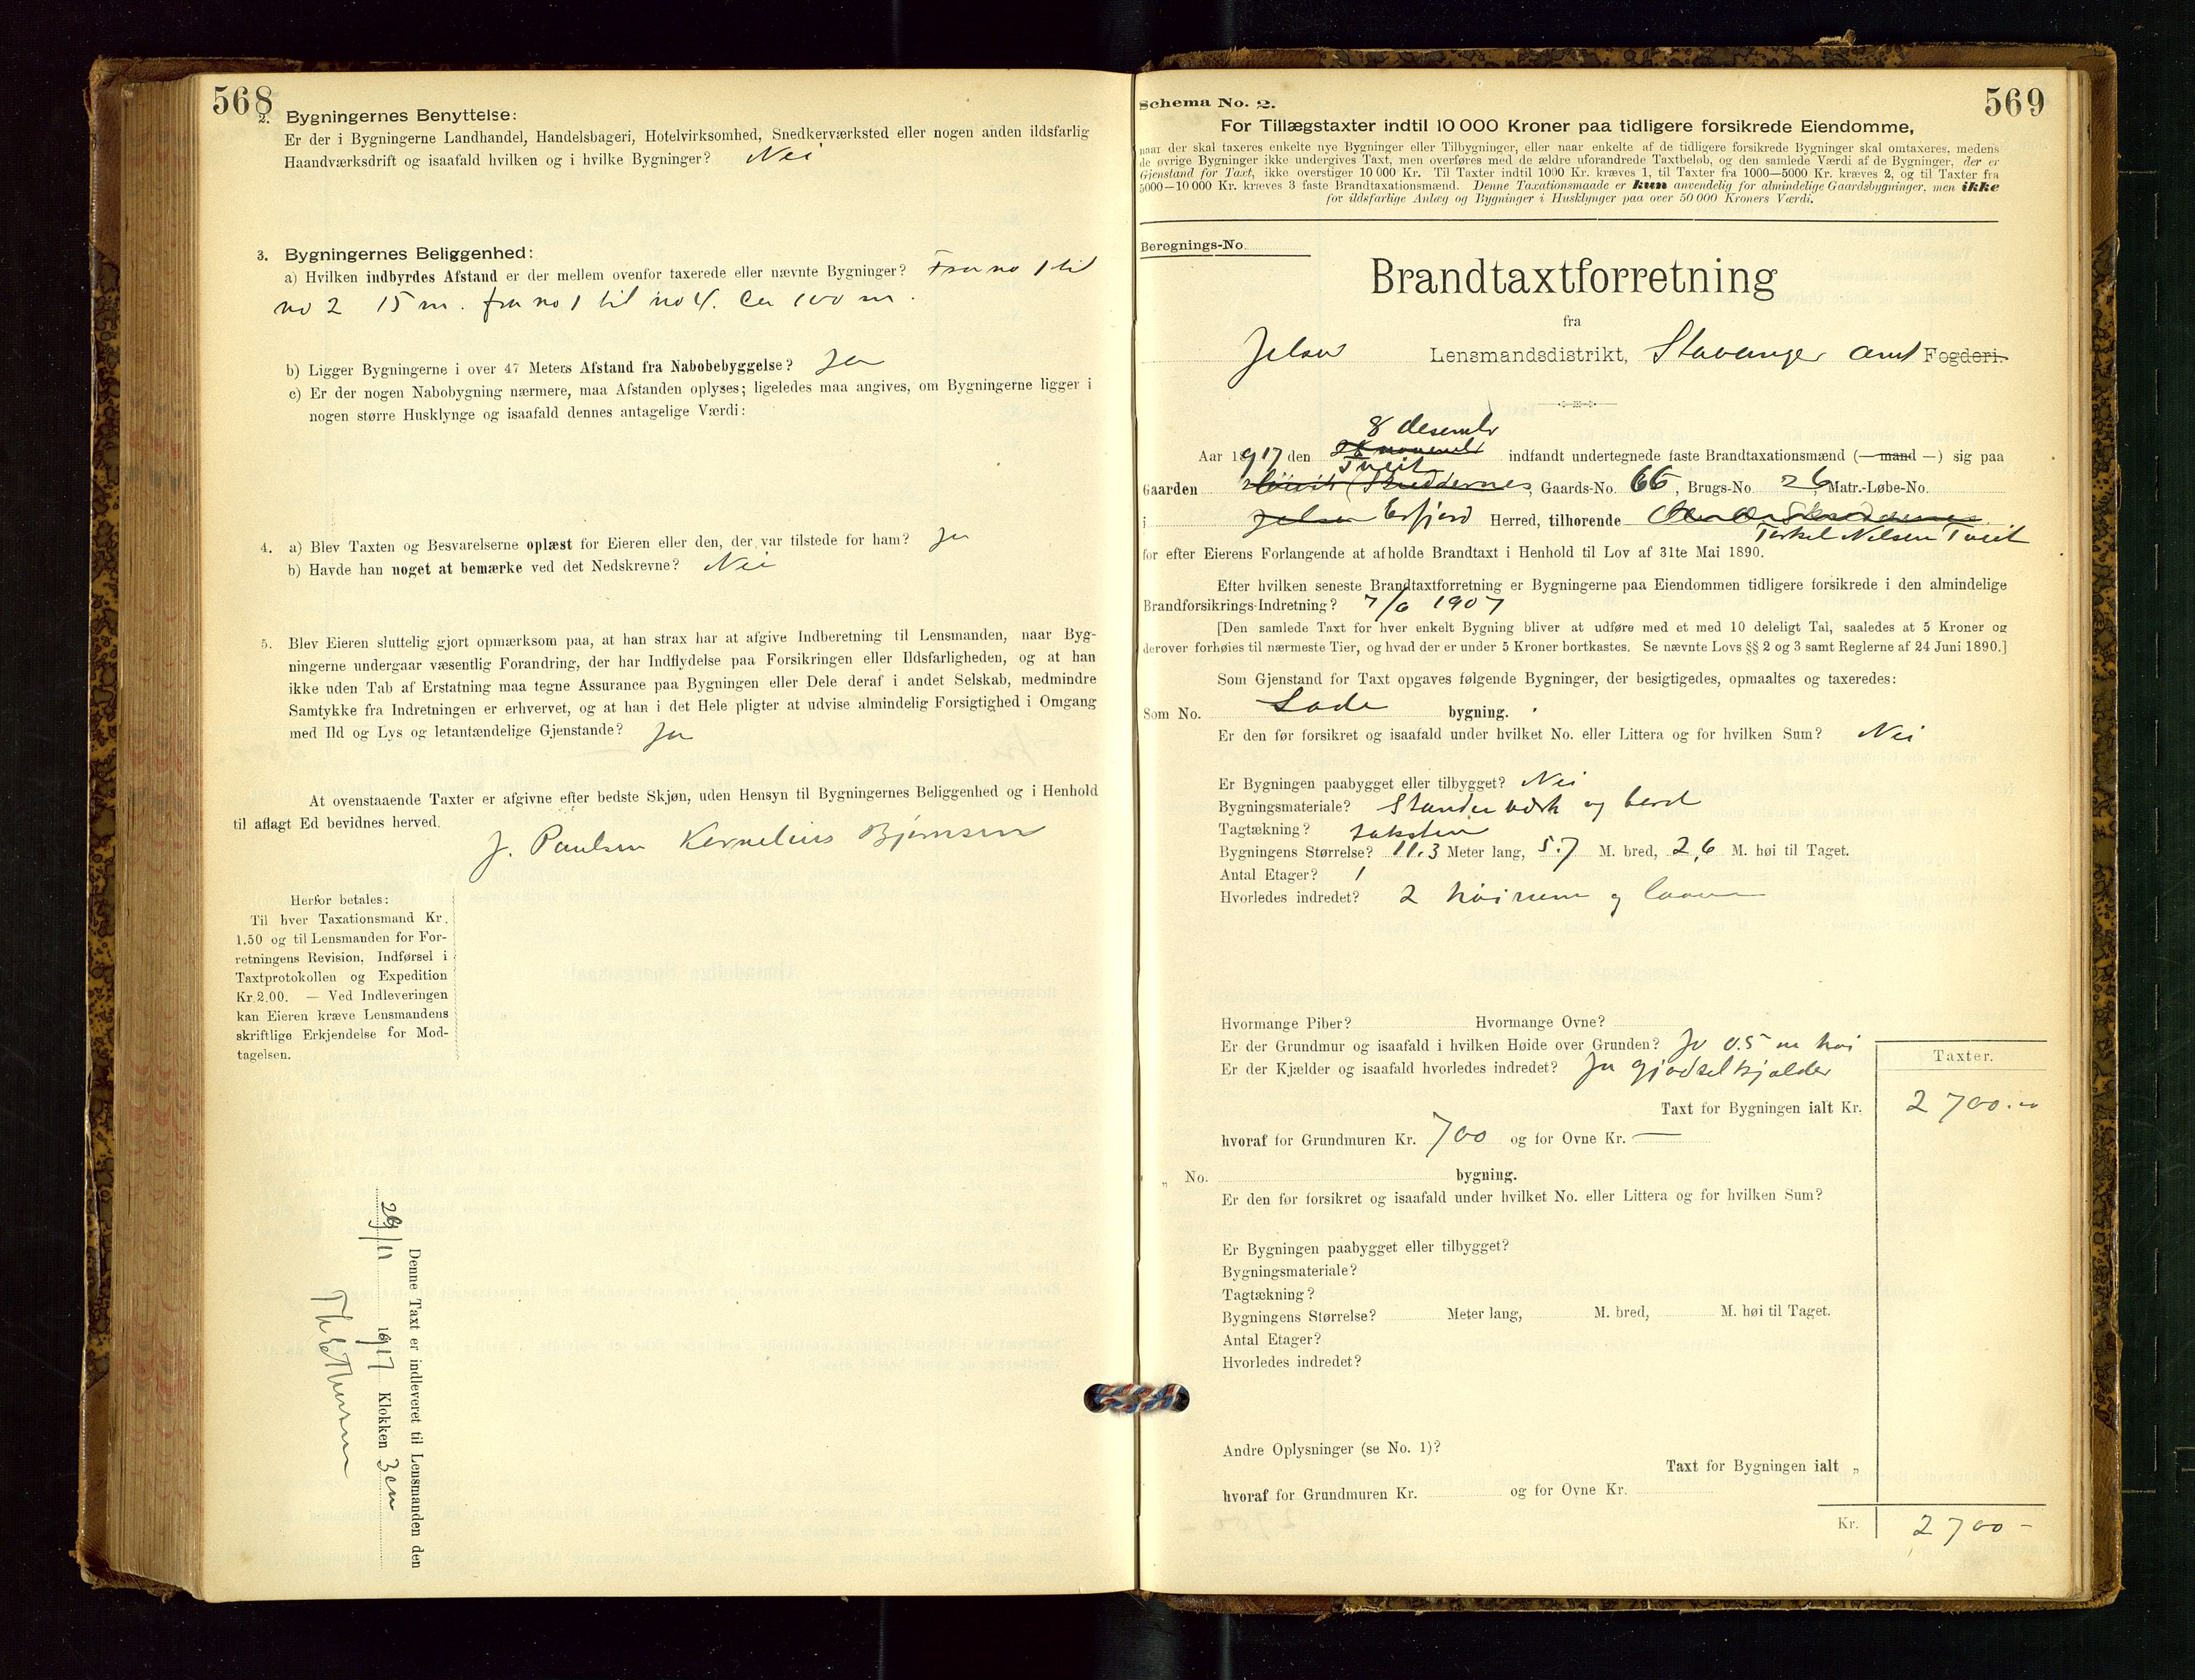 568
2. Bygningernes Benyttelse:
Er der i Bygningerne Landhandel, Handelsbageri, Hotelvirksomhed, Snedkerværksted eller nogen anden ildsfarlig
Haandværksdrift og isaafald hvilken og i hvilke Bygninger? Nei
3. Bygningernes Beliggenhed:
a) Hvilken indbyrdes Afstand er der mellem ovenfor taxerede eller nævnte Bygninger? Fra no 1 til
no 2 15 m. fra no 1 til no 4. ca 100 m.
b) Ligger Bygningerne i over 47 Meters Afstand fra Nabobebyggelse? Ja
c) Er der nogen Nabobygning nærmere, maa Afstanden oplyses; ligeledes maa angives, om Bygningerne ligger i
nogen større Husklynge og isaafald dennes antagelige Værdi:
4. a) Blev Taxten og Besvarelserne oplæst for Eieren eller den, der var tilstede for ham? Ja
b) Havde han noget at bemærke ved det Nedskrevne? Nei
5. Blev Eieren sluttelig gjort opmærksom paa, at han strax har at afgive Indberetning til Lensmanden, naar Byg-
ningerne undergaar væsentlig Forandring, der har Indflydelse paa Forsikringen eller Ildsfarligheden, og at han
ikke uden Tab af Erstatning maa tegne Assurance paa Bygningen eller Dele deraf i andet Selskab, medmindre
Samtykke fra Indretningen er erhvervet, og at han i det Hele pligter at udvise almindelig Forsigtighed i Omgang
med Ild og Lys og letantændelige Gjenstande? Ja
At ovenstaaende Taxter er afgivne efter bedste Skjøn, uden Hensyn til Bygningernes Beliggenhed og i Henhold
til aflagt Ed bevidnes herved.
J. Paulsen Kornelius Bjørnsen
Herfor betales:
Til hver Taxationsmand Kr.
1.50 og til Lensmanden for For-
retningens Revision, Indførsel i
Taxtprotokollen og Expedition
Kr. 2.00. — Ved Indleveringen
kan Eieren kræve Lensmandens
skriftlige Erkjendelse for Mod-
tagelsen.
Denne Taxt er indleveret til Lensmanden den
29/11 1917 Klokken 3 em
569
Schema No. 2.
For Tillægstaxter indtil 10 000 Kroner paa tidligere forsikrede Eiendomme,
naar der skal taxeres enkelte nye Bygninger eller Tilbygninger, eller naar enkelte af de tidligere forsikrede Bygninger skal omtaxeres, medens
de øvrige Bygninger ikke undergives Taxt, men overføres med de ældre uforandrede Taxtbeløb, og den samlede Værdi af de Bygninger, der er
Gjenstand for Taxt, ikke overstiger 10 000 Kr. Til Taxter indtil 1000 Kr. kræves 1, til Taxter fra 1000—5000 Kr. kræves 2, og til Taxter fra
5000—10 000 Kr. kræves 3 faste Brandtaxationsmænd. Denne Taxationsmaade er kun anvendelig for almindelige Gaardsbygninger, men ikke
for ildsfarlige Anlæg og Bygninger i Husklynger paa over 50 000 Kroners Værdi.
Beregnings-No.
Brandtaxtforretning
fra
Jelsa Lensmandsdistrikt, Stavanger amt Fogderi.
8 desembr
Aar 1917 den 28 novembr indfandt undertegnede faste Brandtaxationsmænd (— mand —) sig paa
Tveit
Gaarden , Gaards-No. 66, Brugs-No. 26 Matr.-Løbe-No.
i Jelsa Erfjord Herred, tilhørende
Torkel Nilsen Tveit
for efter Eierens Forlangende at afholde Brandtaxt i Henhold til Lov af 31te Mai 1890.
Efter hvilken seneste Brandtaxtforretning er Bygningerne paa Eiendommen tidligere forsikrede i den almindelige
Brandforsikrings-Indretning? 7/6 1907
[Den samlede Taxt for hver enkelt Bygning bliver at udføre med et med 10 deleligt Tal, saaledes at 5 Kroner og
derover forhøies til nærmeste Tier, og hvad der er under 5 Kroner bortkastes. Se nævnte Lovs §§ 2 og 3 samt Reglerne af 24 Juni 1890.]
Som Gjenstand for Taxt opgaves følgende Bygninger, der besigtigedes, opmaaltes og taxeredes:
Som No. Lade bygning.
Er den før forsikret og isaafald under hvilket No. eller Littera og for hvilken Sum? Nei
Er Bygningen paabygget eller tilbygget? Nei
Bygningsmateriale? Standerværk og bord
Tagtækning? taksten
Bygningens Størrelse? 11.3 Meter lang, 5.7 M. bred, 2,6 M. høi til Taget.
Antal Etager? 1
Hvorledes indredet? 2 høirum og laave
Hvormange Piber? Hvormange Ovne?
Er der Grundmur og isaafald i hvilken Høide over Grunden? Ja 0.5 m høi
Er der Kjælder og isaafald hvorledes indredet? Ja gjødselkjælder
Taxter.
Taxt for Bygningen ialt Kr. 2700.00
hvoraf for Grundmuren Kr. 700 og for Ovne Kr. —
„ No. bygning.
Er den før forsikret og isaafald under hvilket No. eller Littera og for hvilken Sum?
Er Bygningen paabygget eller tilbygget?
Bygningsmateriale?
Tagtækning?
Bygningens Størrelse? Meter lang, M. bred, M. høi til Taget.
Antal Etager?
Hvorledes indredet?
Andre Oplysninger (se No. 1)?
Taxt for Bygningen ialt „
hvoraf for Grundmuren Kr. og for Ovne Kr.
Kr. 2700 -